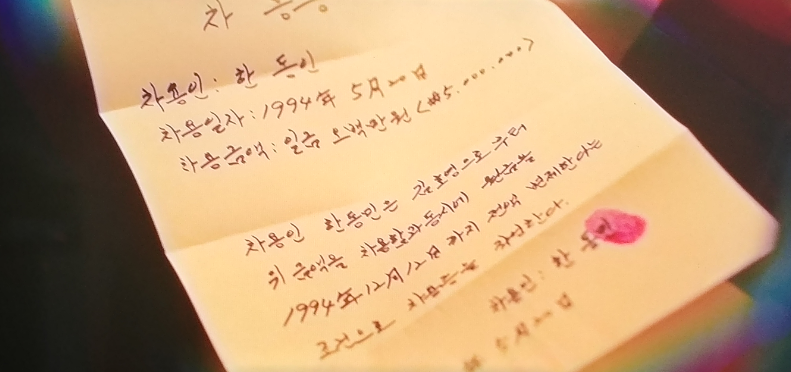 차 용 증
차용인: 한 동민
차용일자: 1994年 5月 20日
차용금액: 일금 오백만원 <₩5.000.000>
차용인 한동민은 김호영으로 부터
위 금액을 차용함과 동시에 원금을
1994年 12月 12日 까지 전액 변제한다는
조건으로 차용증을 작성한다.
차용인: 한 동민
5月 20日